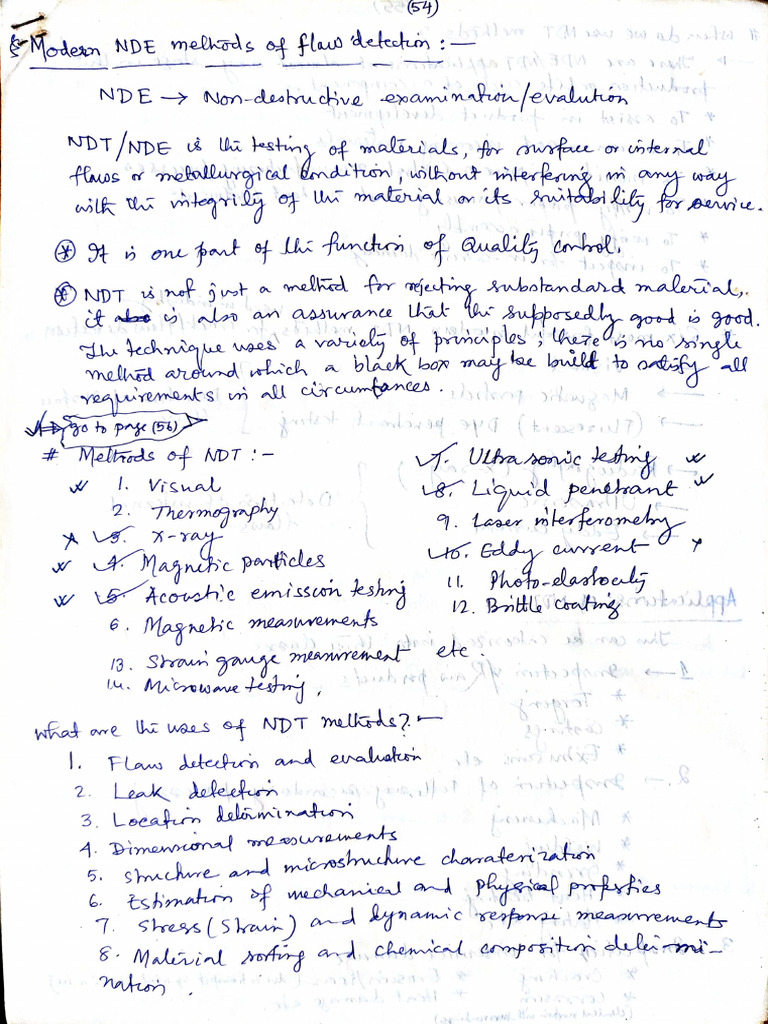 (54)
§ Modern NDE methods of flaw detection :—
NDE → Non-destructive examination/evalution
NDT/NDE is the testing of materials, for surface or internal
flaws or metallurgical condition, without interfering in any way
with the integrity of the material or its suitability for service.
* It is one part of the function of Quality control.
* NDT is not just a method for rejecting substandard material,
it also is also an assurance that the supposedly good is good.
The technique uses a variety of principles; there is no single
method around which a black box may be built to satisfy all
requirements in all circumstances.
go to page (56)
# Methods of NDT :-
1. Visual
2. Thermography
3. X-ray
4. Magnetic particles
5. Acoustic emission testing
6. Magnetic measurements
7. Ultrasonic testing
8. Liquid penetrant
9. Laser interferometry
10. Eddy current
11. Photo-elastocity
12. Brittle coating
13. Strain gauge measurement etc.
14. Microwave testing,
What are the uses of NDT methods? —
1. Flaw detection and evaluation
2. Leak detection
3. Location determination
4. Dimensional measurements
5. Structure and microstructure charaterization
6. Estimation of mechanical and physical properties
7. Stress (Strain) and dynamic response measurements
8. Material sorting and chemical composition determi-
nation.